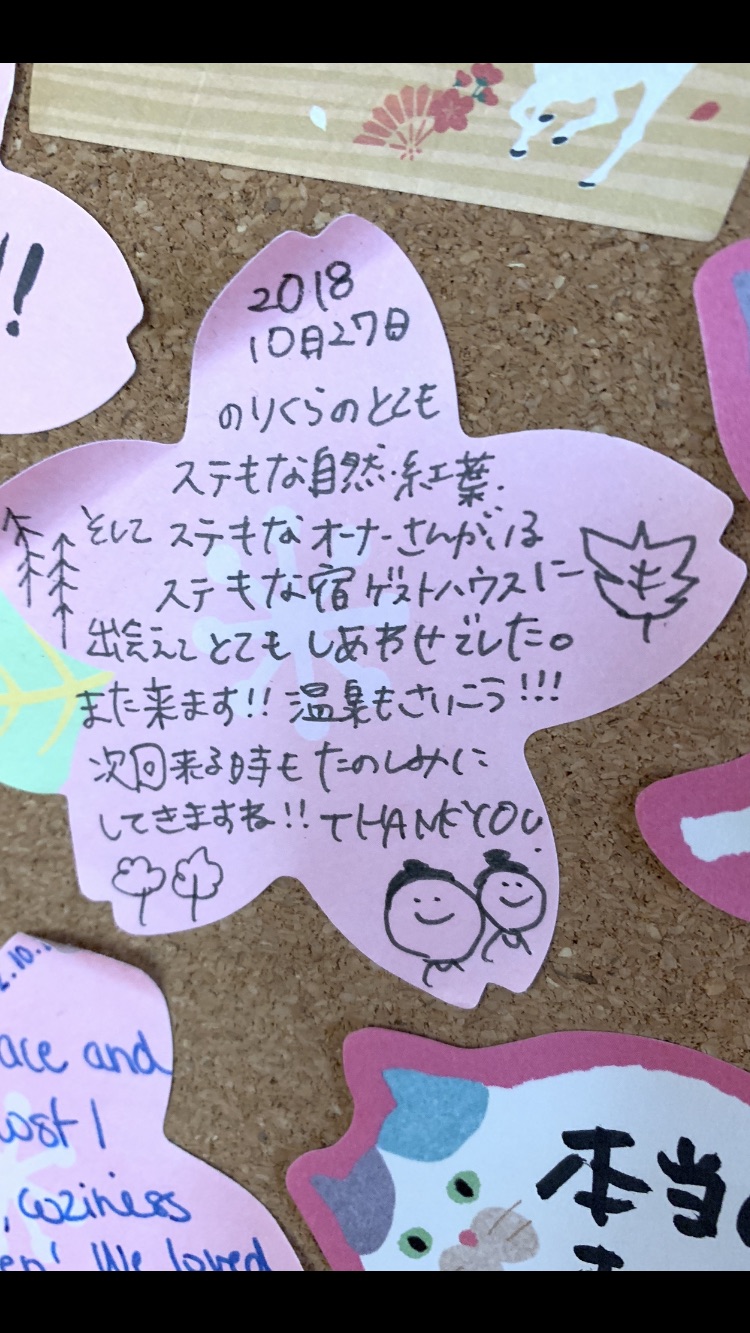 !!
2018
10日27日
のりくらのとても
ステキな自然・紅葉.
そして ステキなオーナーさんがいる
ステキな宿ゲストハウスに
出会えてとてもしあわせでした。
また来ます!! 温泉もさいこう!!!
次回来る時もたのしみに
してきますね!! THANKYOU.
.10.
ace and
ost I
, coziness
en! We loved
本当